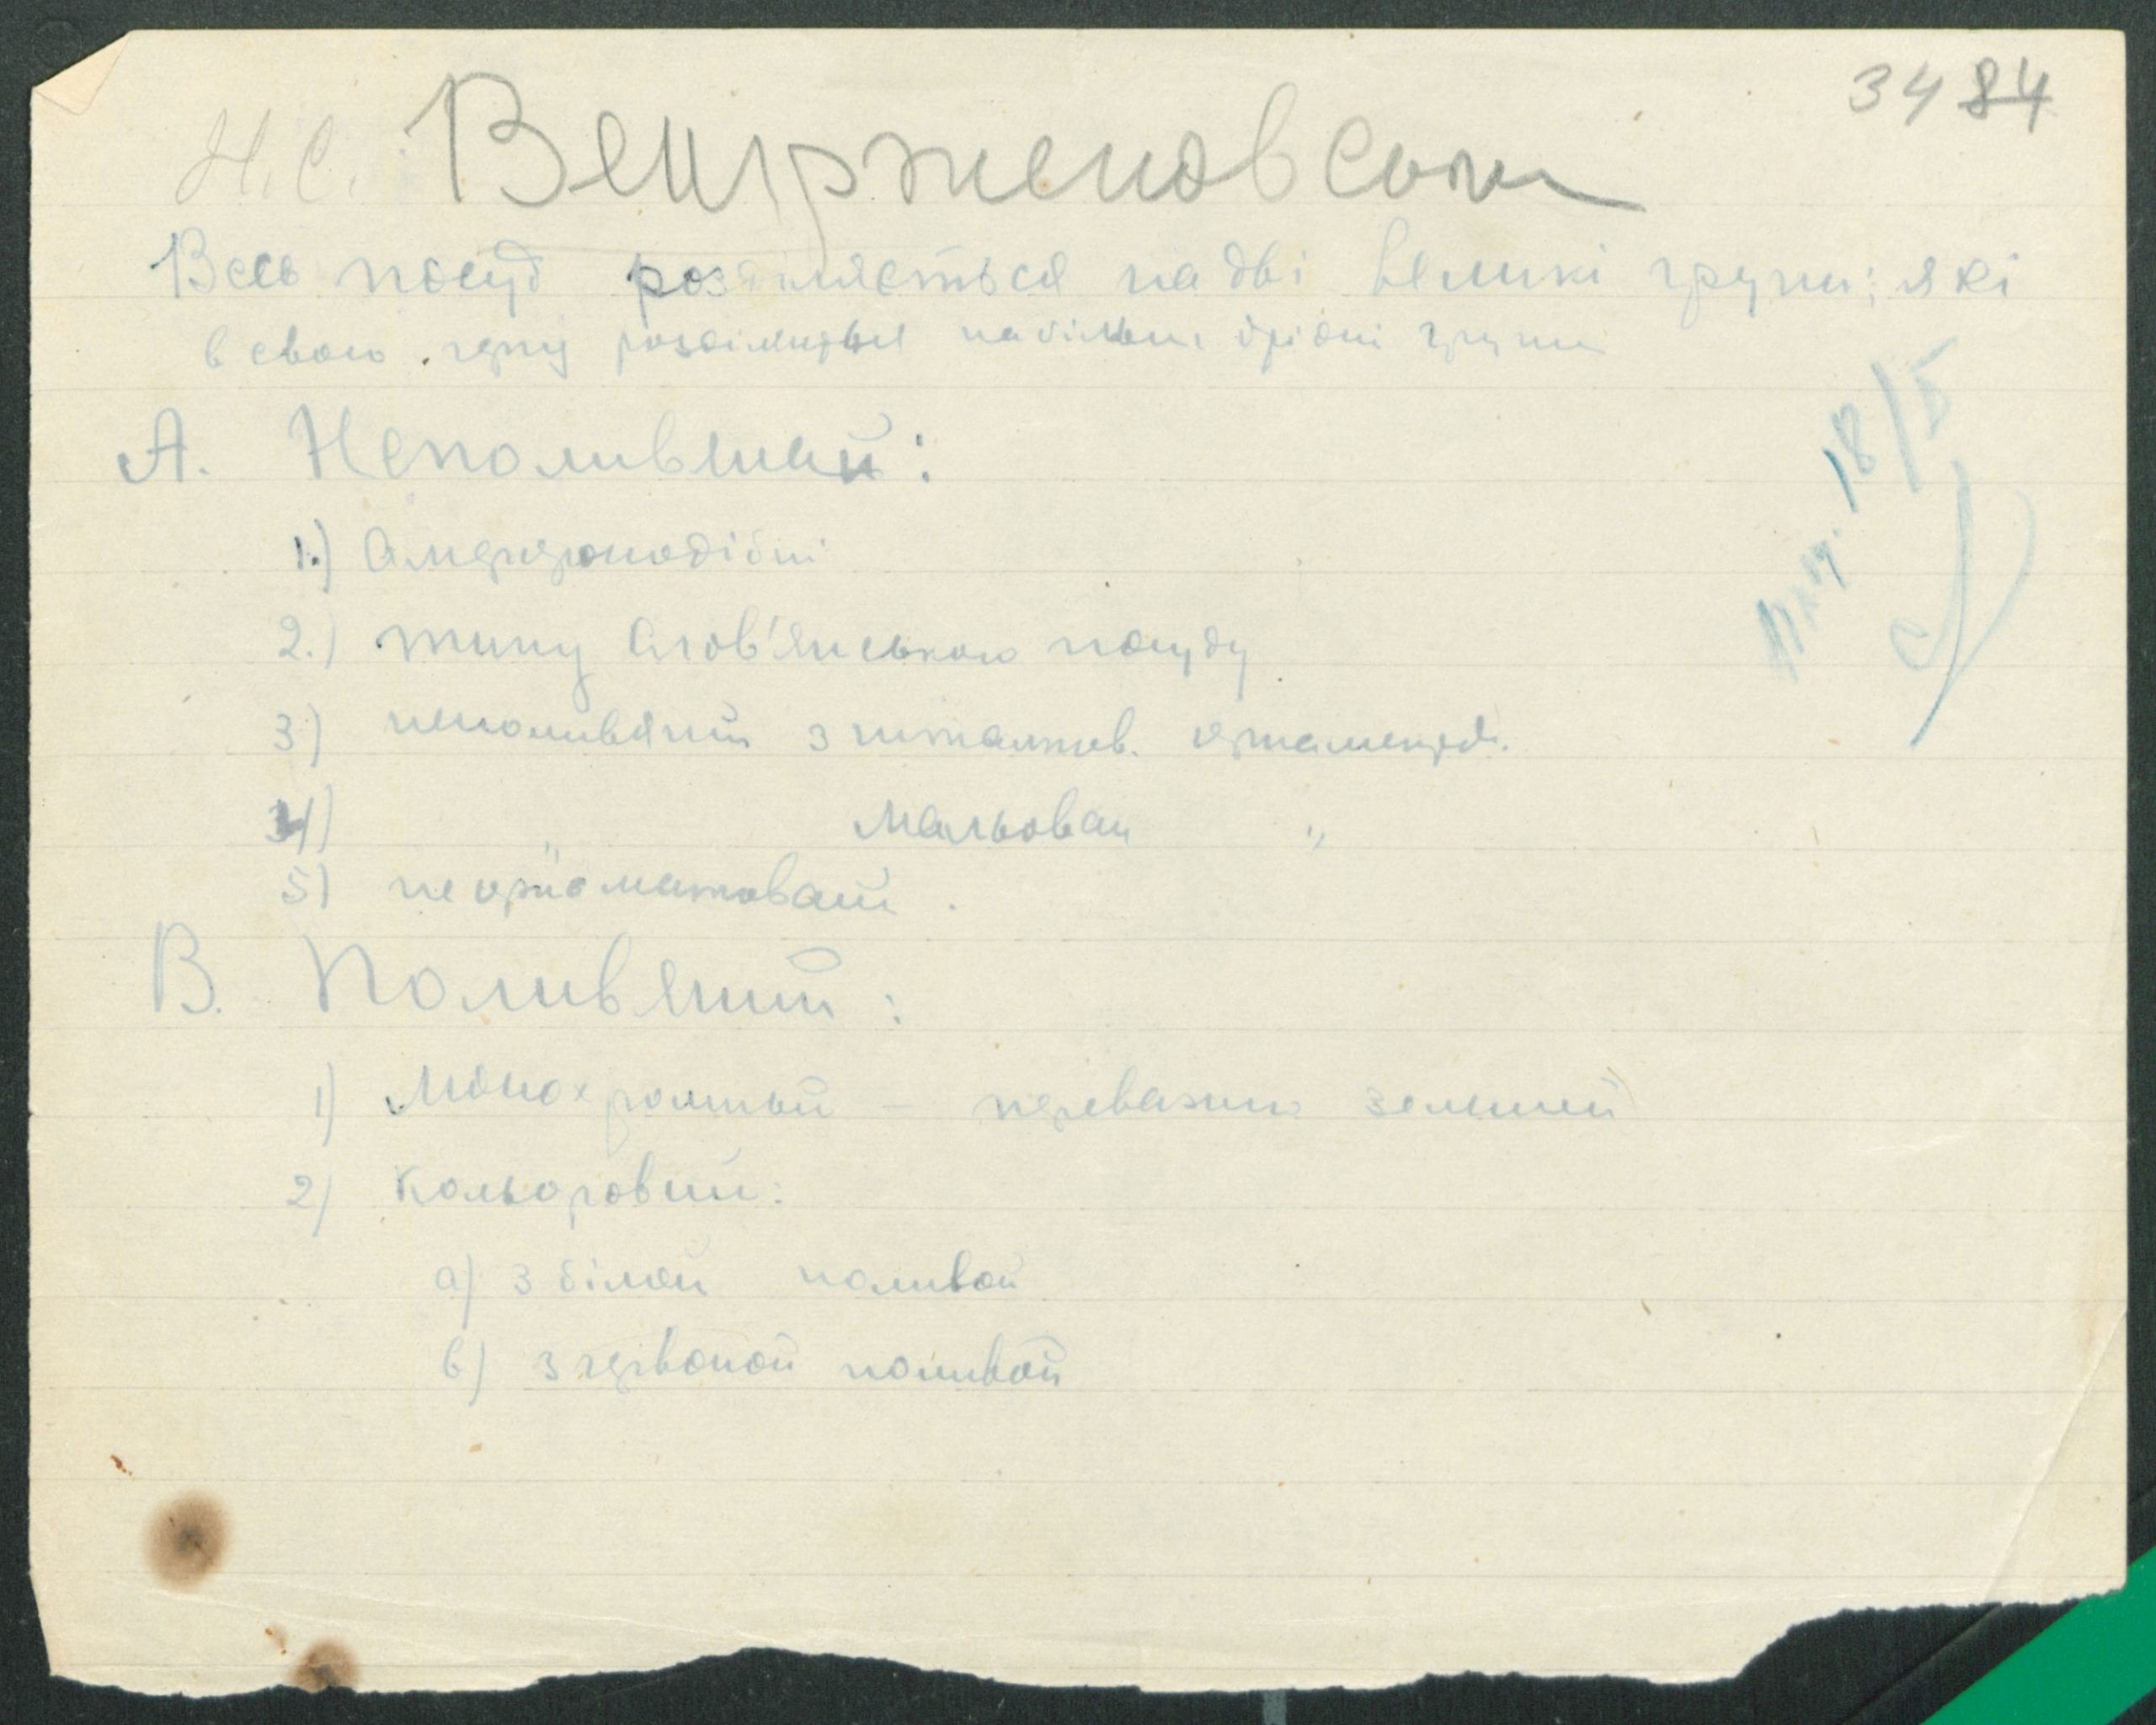 34 84
Н.С. Венгрженовськ
Весь посуд розділяється на дві великі групи; які
в свою чергу розділяються на більш дрібні групи
А. Неполивяний:
1.) Амфороподібні
2.) типу слов'янського посуду
3) неполивяний з штампов. орнамент.
4) " мальован "
5) не орнаментований.
В. Поливяний:
1) Монохромный – переважно зелений
2) Кольоровий:
а) з білой поливой
в) з червоной поливой
18/